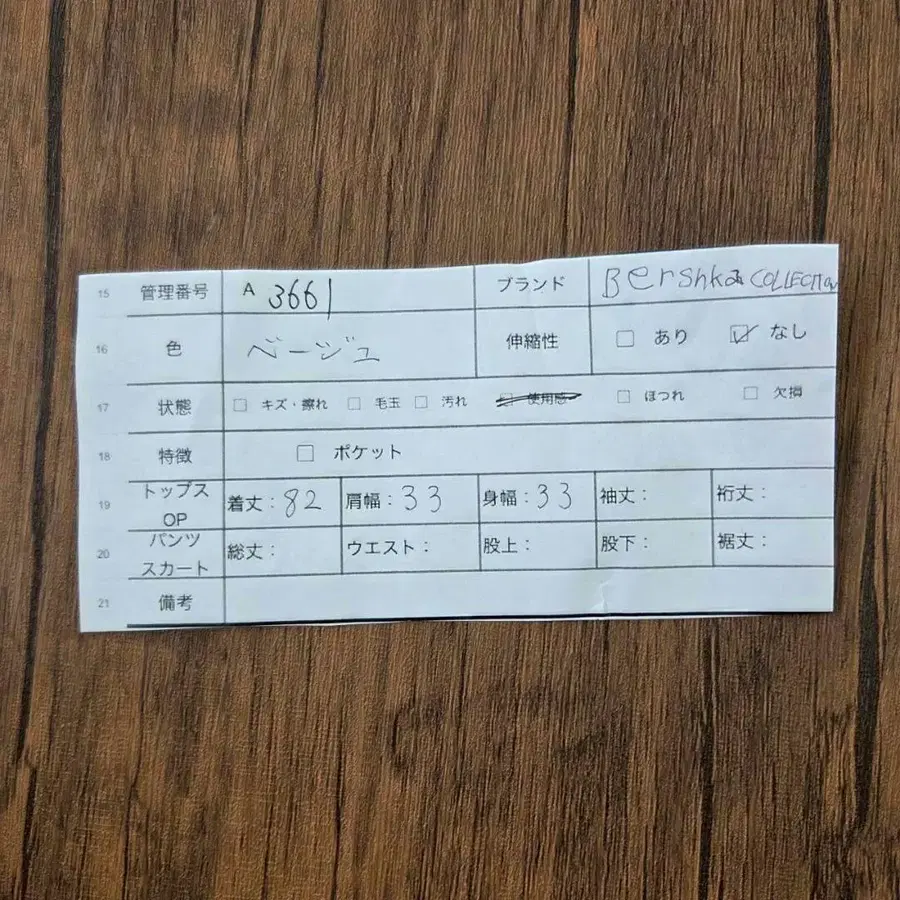 15 管理番号 A 3661 ブランド Bershka COLLECTION
16 色 ベージュ 伸縮性 □ あり ☑ なし
17 状態 □ キズ・擦れ □ 毛玉 □ 汚れ □ 使用感 □ ほつれ □ 欠損
18 特徴 □ ポケット
19 トップス OP 着丈：82 肩幅：33 身幅：33 袖丈： 裄丈：
20 パンツ スカート 総丈： ウエスト： 股上： 股下： 裾丈：
21 備考